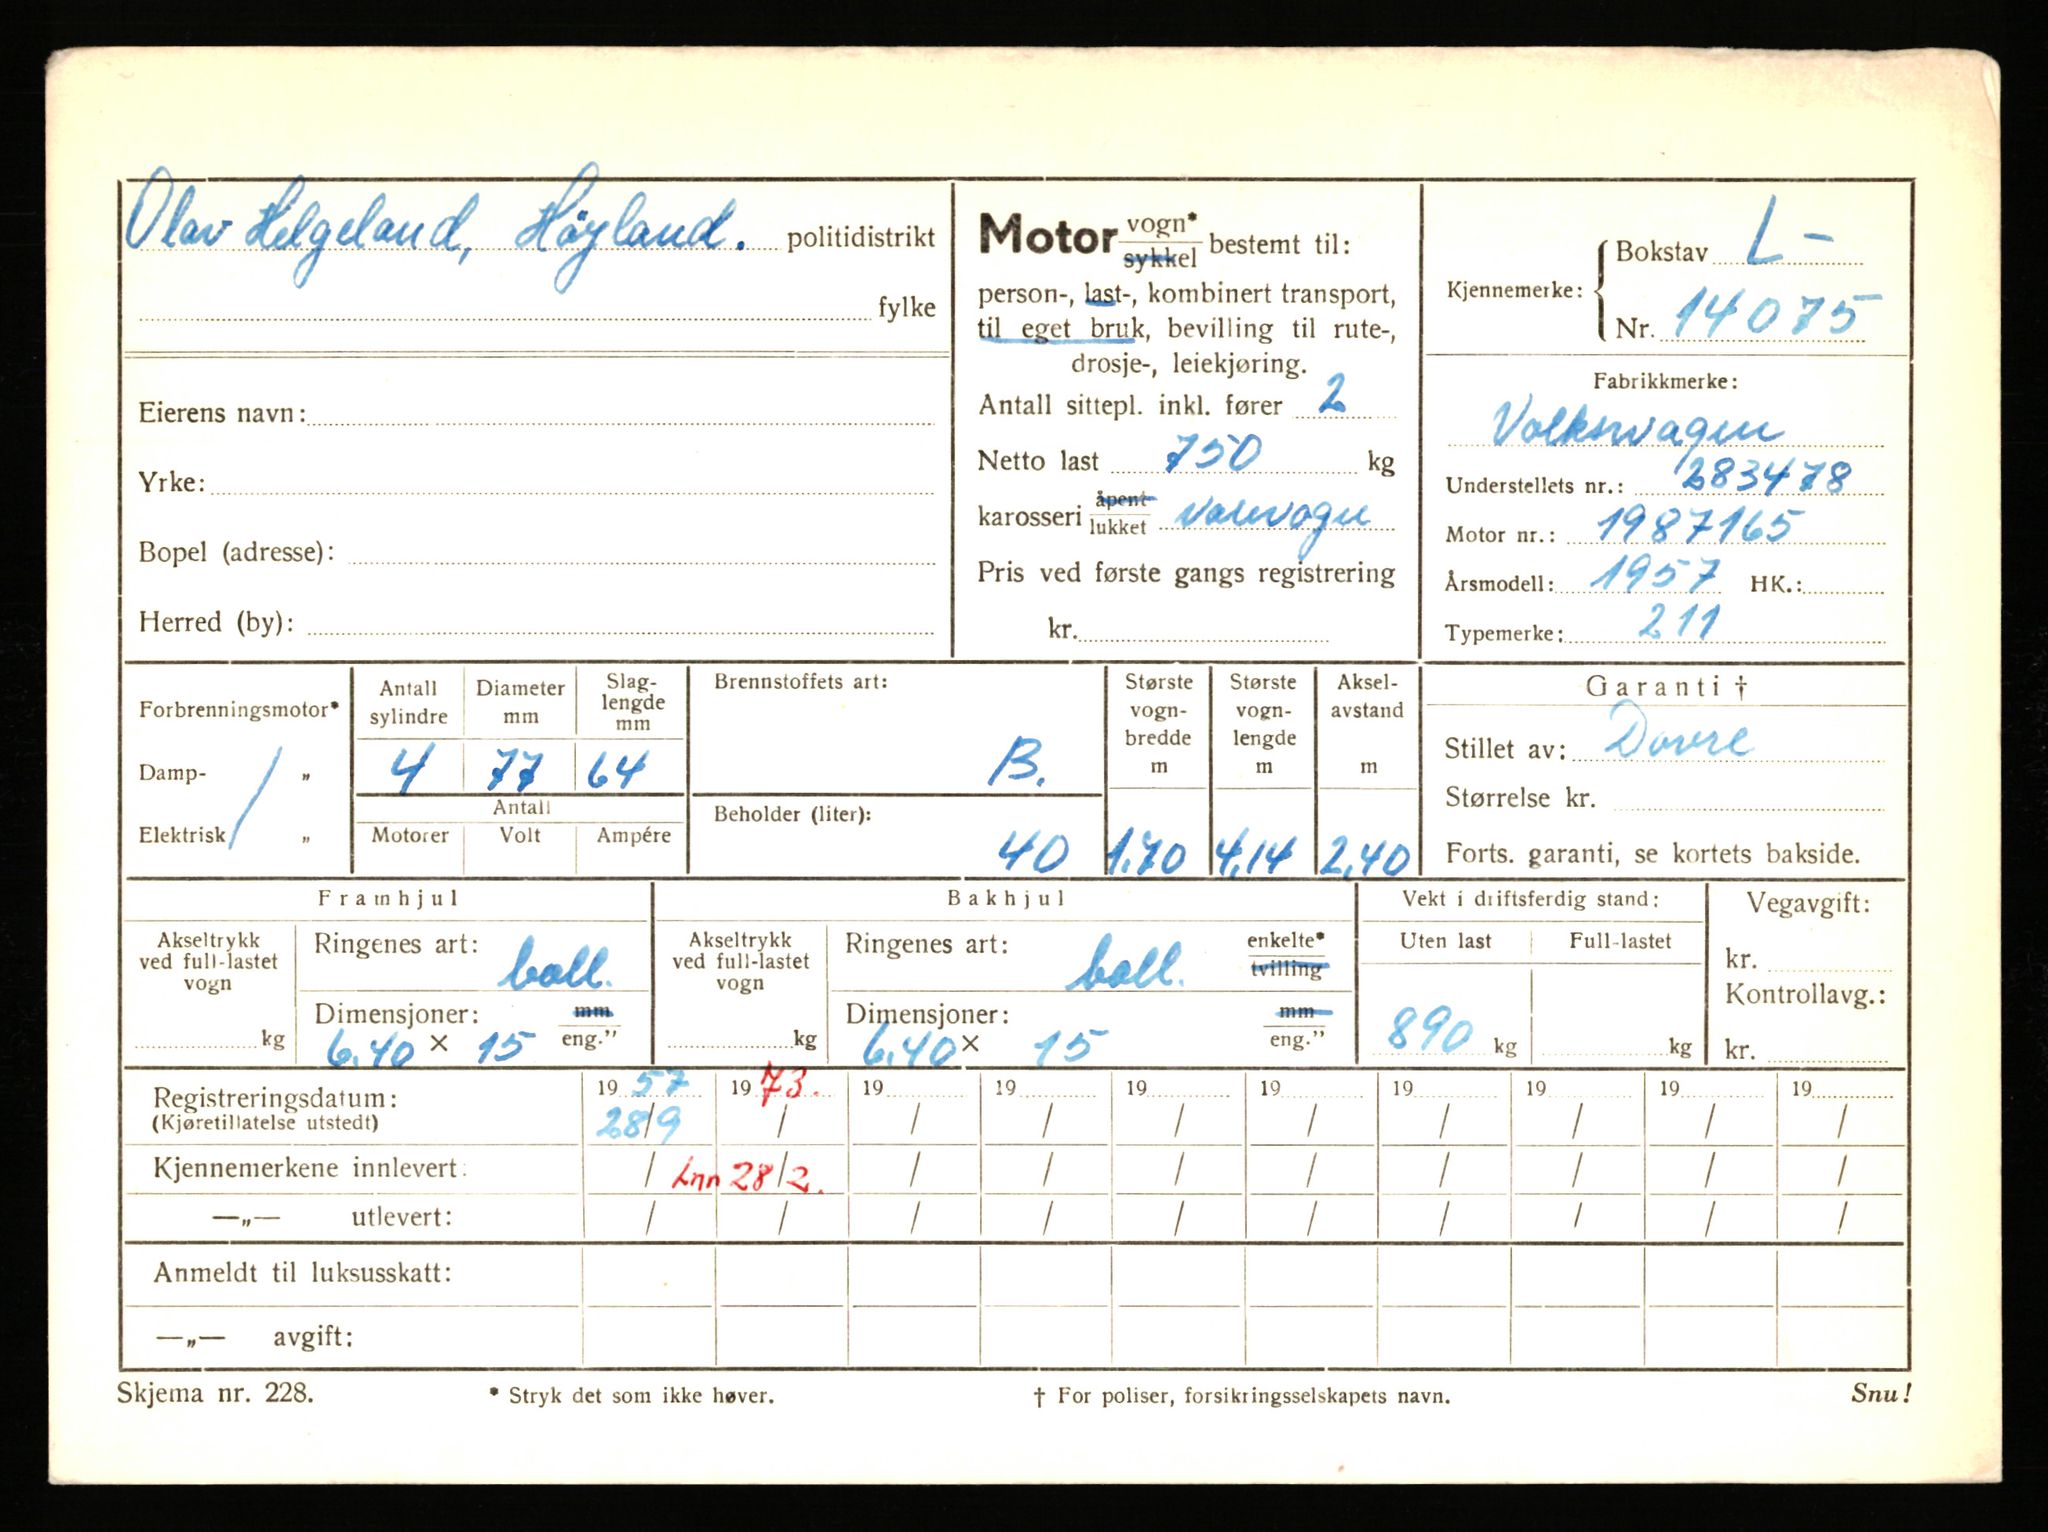 Olav Helgeland, Höyland. politidistrikt
fylke
Eierens navn:
Yrke:
Bopel (adresse):
Herred (by):
Motor vogn* sykkel bestemt til:
person-, last-, kombinert transport,
til eget bruk, bevilling til rute-,
drosje-, leiekjøring.
Antall sittepl. inkl. fører 2
Netto last 750 kg
karosseri åpent lukket varevogn
Pris ved første gangs registrering
kr.
Kjennemerke: Bokstav L-
Nr. 14075
Fabrikkmerke:
Volkswagen
Understellets nr.: 283478
Motor nr.: 1987165
Årsmodell: 1957 HK.:
Typemerke: 211
Forbrenningsmotor*
Damp- „
Elektrisk „
Antall sylindre
Diameter mm
Slag-lengde mm
4 77 64
Antall
Motorer Volt Ampére
Brennstoffets art:
B.
Beholder (liter):
40
Største vogn-bredde m
1.70
Største vogn-lengde m
4,14
Aksel-avstand m
2,40
Garanti †
Stillet av: Dovre
Størrelse kr.
Forts. garanti, se kortets bakside.
Framhjul
Akseltrykk ved full-lastet vogn
kg
Ringenes art: ball.
Dimensjoner: mm
6.40 × 15 eng.”
Bakhjul
Akseltrykk ved full-lastet vogn
kg
Ringenes art: ball. enkelte* tvilling
Dimensjoner: mm
6.40 × 15 eng.”
Vekt i driftsferdig stand:
Uten last Full-lastet
890 kg kg
Vegavgift:
kr.
Kontrollavg.:
kr.
Registreringsdatum: 19 57 19 73. 19 19 19 19 19 19 19 19
(Kjøretillatelse utstedt) 28/9 / / / / / / / / /
Kjennemerkene innlevert: / Inn 28/2. / / / / / / / /
—„— utlevert: / / / / / / / / / /
Anmeldt til luksusskatt:
—„— avgift:
Skjema nr. 228. * Stryk det som ikke høver. † For poliser, forsikringsselskapets navn. Snu!